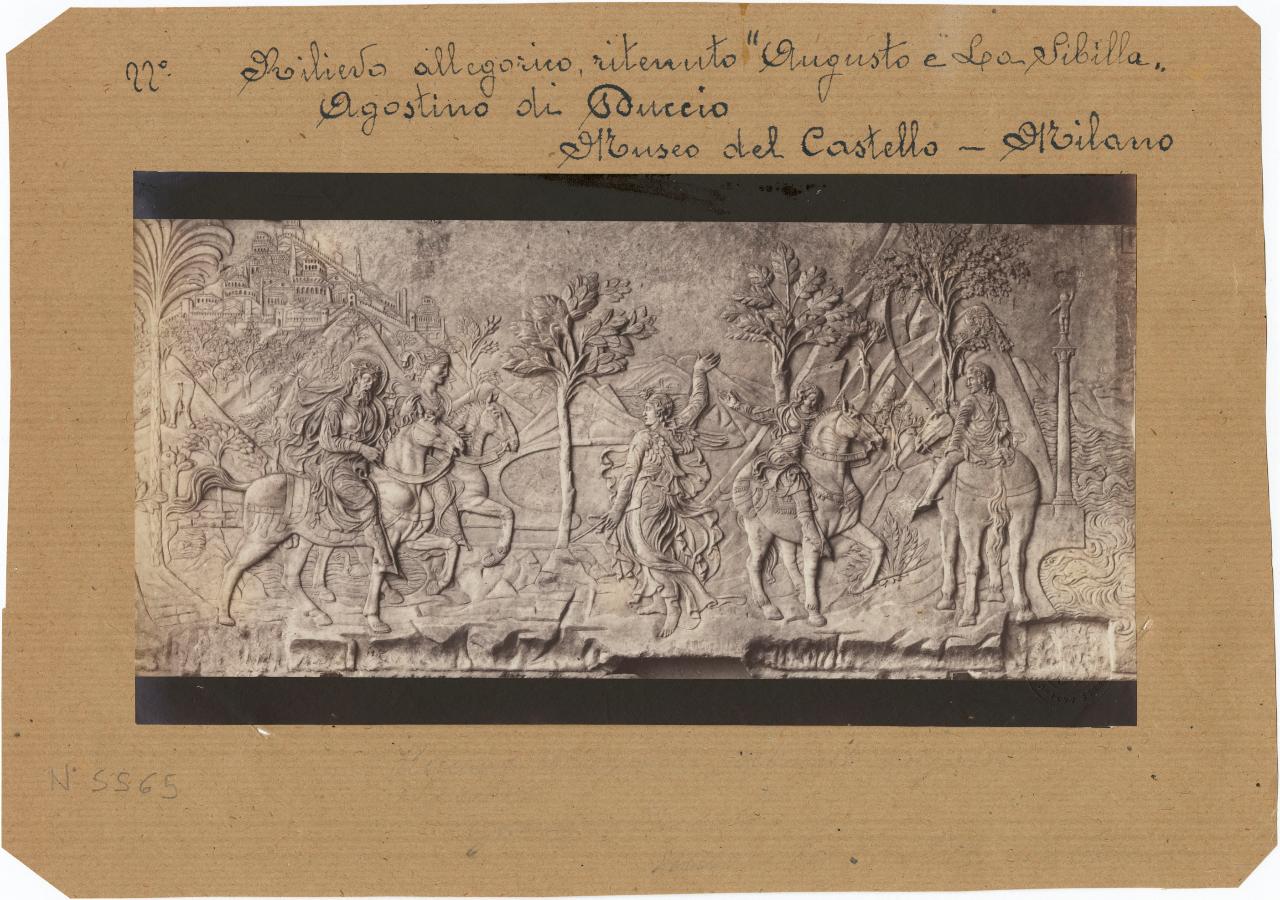 22° Rilievo allegorico, ritenuto "Augusto e La Sibilla„
Agostino di Duccio
Museo del Castello – Milano
N° 5565